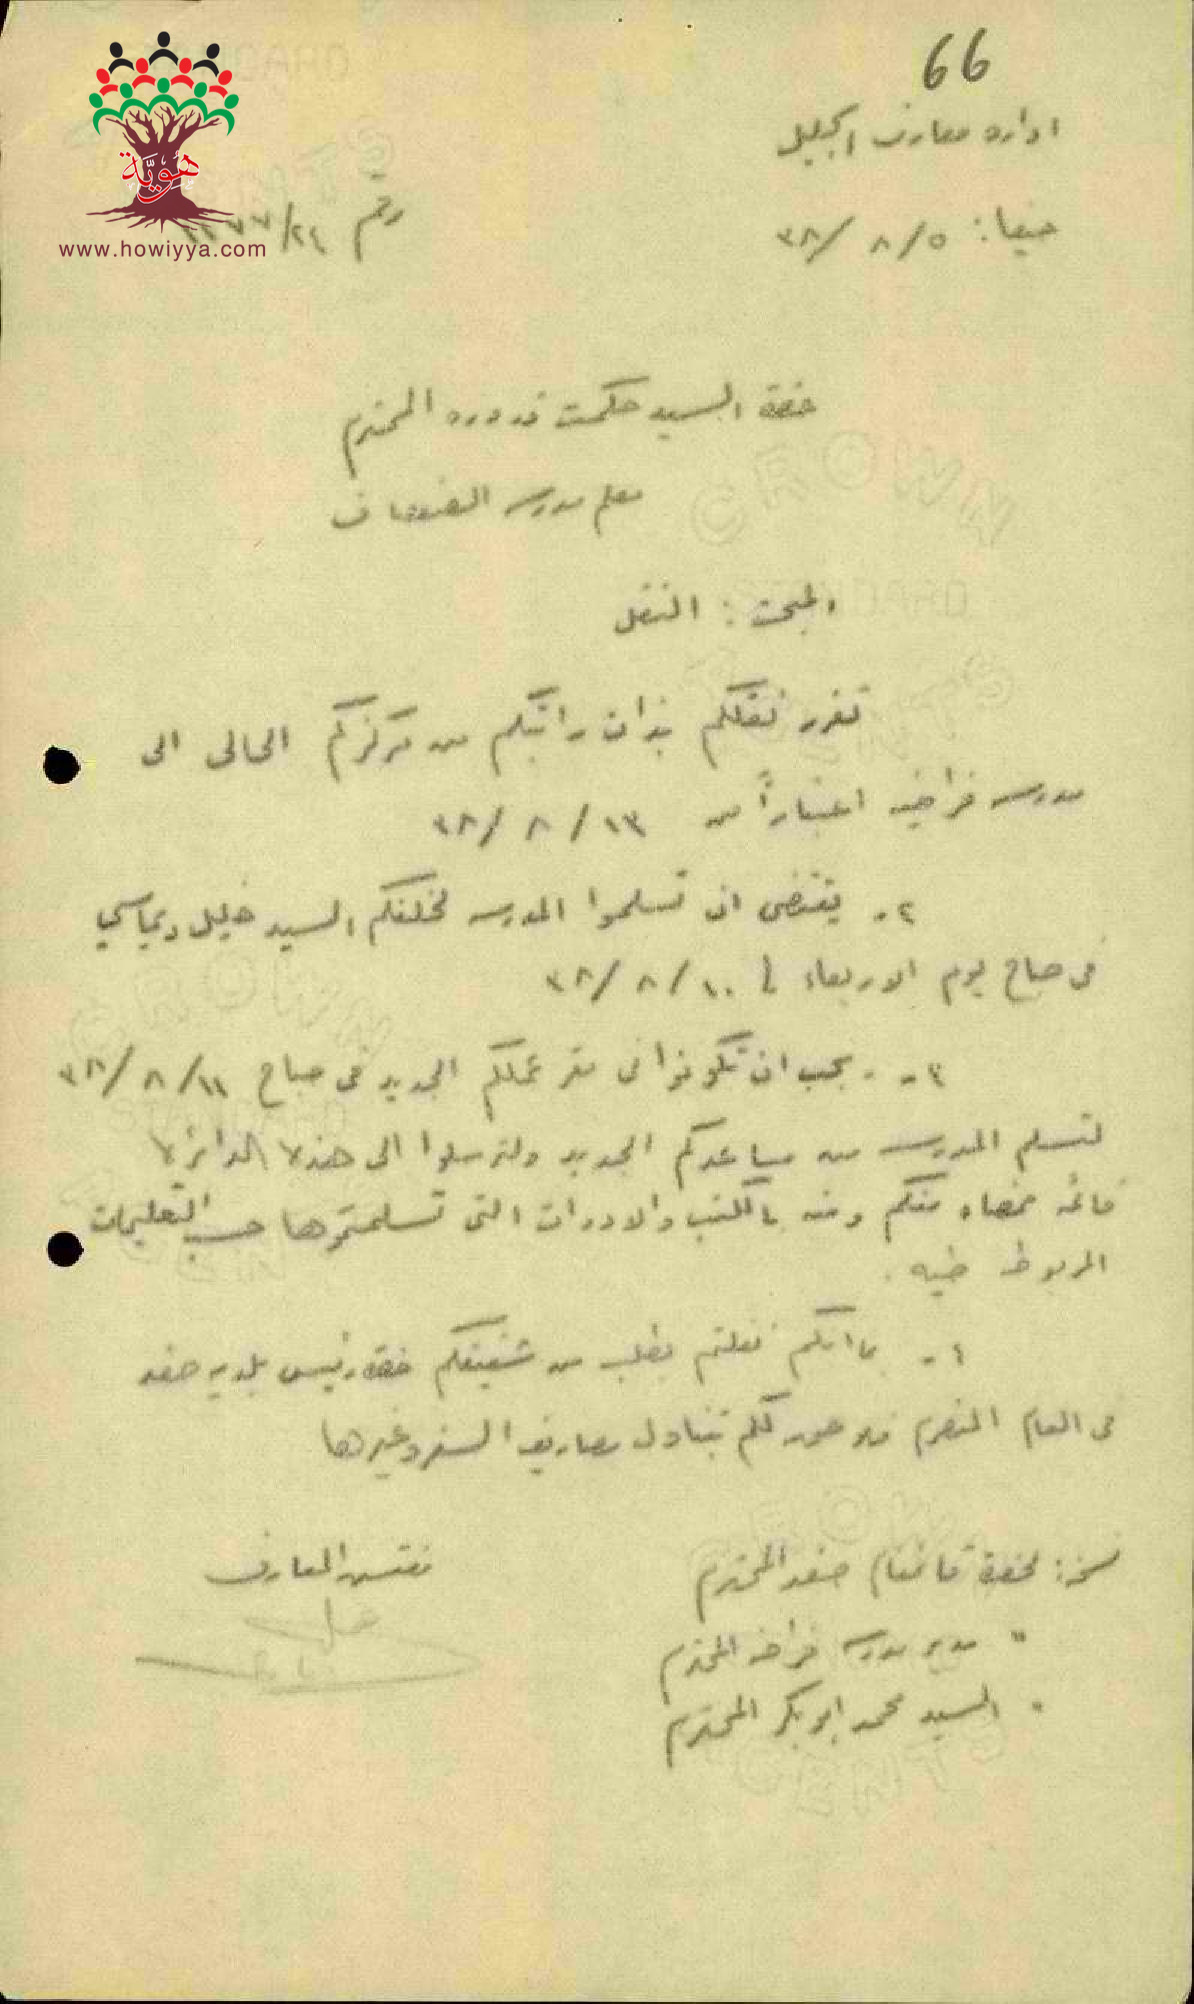 66
ادارة معارف الجليل
حيفا: ٥/ ٨ /٣٨
رقم ٢٤/
هُوِيَّة
www.howiyya.com
حضرة السيد حكمت قدورة المحترم
معلم مدرسة
المبحث: النقل
تقرر نقلكم بذات راتبكم من مركزكم الحالي الى
مدرسة فراضيه اعتباراً من ١٣/ ٨ /٣٨
٢- يقتضى ان تسلموا المدرسة لخلفكم السيد خليل ديماسي
فى صباح يوم الاربعاء فى ١٠/ ٨ /٣٨
٣- يجب ان تكونوا فى مقر عملكم الجديد فى صباح ١١/ ٨ /٣٨
لتسلم المدرسة من مساعدكم الجديد ولترسلوا الى هذه الدائرة
قائمة ممضاه منكم ومنه بالكتب والادوات التى تسلمتموها حسب التعليمات
المربوطة طيه.
٤- بما انكم نقلتم بطلب من شقيقكم حضرة رئيس بلدية صفد
فى العام المنصرم فلا حق لكم بتناول مصاريف السفر وغيرها
مفتش المعارف
نسخة: لحضرة قائمقام صفد المحترم
" مدير مدرسة فراضه المحترم
" السيد محمد ابو بكر المحترم